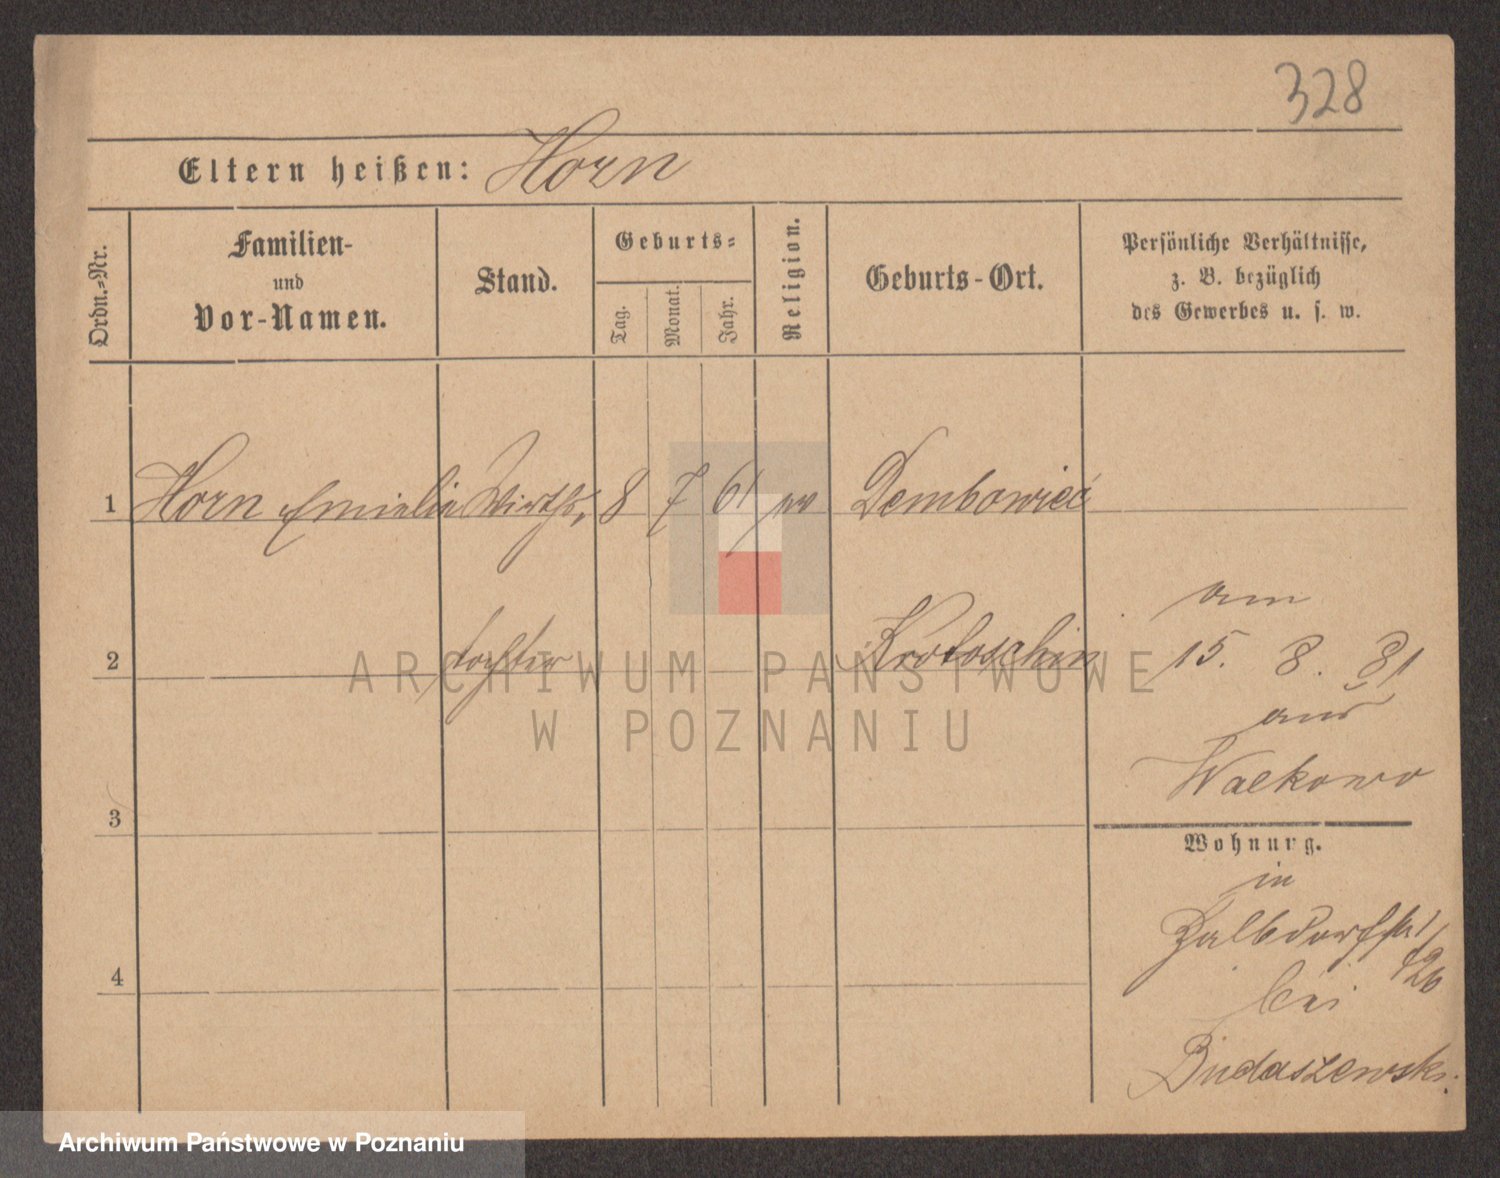 328
Eltern heißen: Horn
Ordn.-Nr.
Familien-
und
Vor-Namen.
Stand.
Geburts-
Tag.
Monat.
Jahr.
Religion.
Geburts-Ort.
Persönliche Verhältnisse,
z. B. bezüglich
des Gewerbes u. s. w.
1 Horn Emielie Wirths, 8 7 61 Dembowiec
2 tochter Krotoschin
am
15. 8. 81
aus
Walkowo
3
Wohnung.
in
4
bei
Budaszewski.
ARCHIWUM PAŃSTWOWE
W POZNANIU
Archiwum Państwowe w Poznaniu